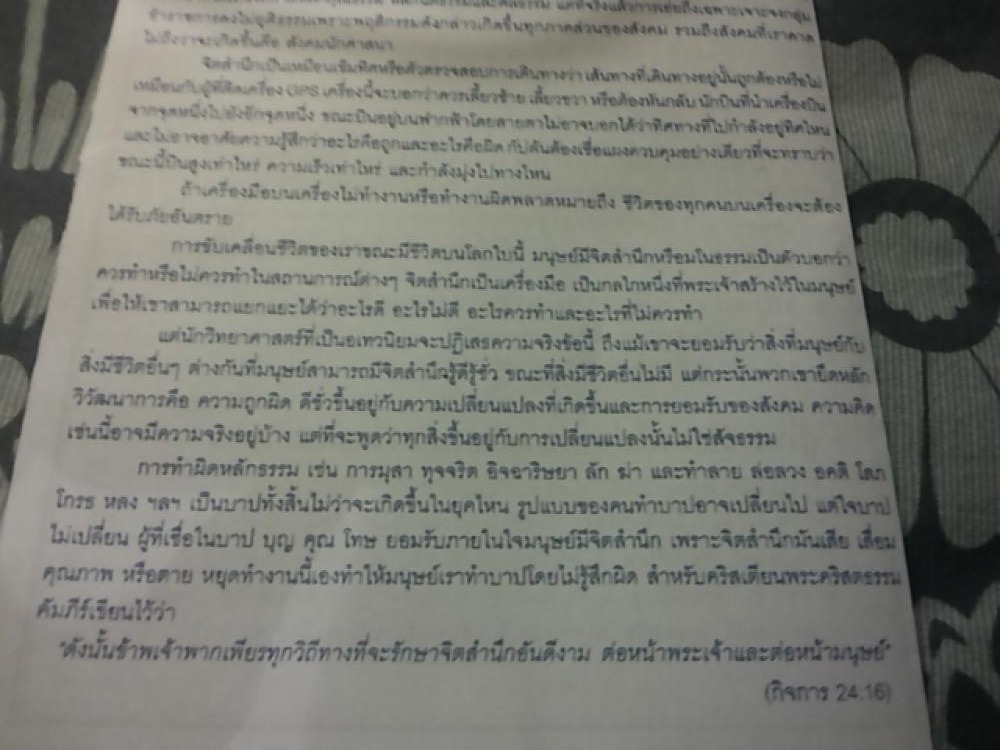 แต่ที่จริงแล้วการเอ่ยถึงเฉพาะเจาะจงกลุ่ม
ข้าราชการคงไม่ยุติธรรมเพราะพฤติกรรมดังกล่าวเกิดขึ้นทุกภาคส่วนของสังคม รวมถึงสังคมที่เราคาด
ไม่ถึงว่าจะเกิดขึ้นคือ สังคมนักศาสนา
จิตสำนึกเป็นเหมือนเข็มทิศหรือตัวตรวจสอบการเดินทางว่า เส้นทางที่เดินทางอยู่นั้นถูกต้องหรือไม่
เหมือนกับผู้ที่ติดเครื่อง GPS เครื่องนี้จะบอกว่าควรเลี้ยวซ้าย เลี้ยวขวา หรือต้องหันกลับ นักบินที่นำเครื่องบิน
จากจุดหนึ่งไปยังอีกจุดหนึ่ง ขณะบินอยู่บนฟากฟ้าโดยสายตาไม่อาจบอกได้ว่าทิศทางที่ไปกำลังอยู่ทิศไหน
และไม่อาจอาศัยความรู้สึกว่าอะไรคือถูกและอะไรคือผิด กัปตันต้องเชื่อแผงควบคุมอย่างเดียวที่จะทราบว่า
ขณะนี้บินสูงเท่าไหร่ ความเร็วเท่าไหร่ และกำลังมุ่งไปทางไหน
ถ้าเครื่องมือบนเครื่องไม่ทำงานหรือทำงานผิดพลาดหมายถึง ชีวิตของทุกคนบนเครื่องจะต้อง
ได้รับภัยอันตราย
การขับเคลื่อนชีวิตของเราขณะมีชีวิตบนโลกใบนี้ มนุษย์มีจิตสำนึกหรือมโนธรรมเป็นตัวบอกว่า
ควรทำหรือไม่ควรทำในสถานการณ์ต่างๆ จิตสำนึกเป็นเครื่องมือ เป็นกลไกหนึ่งที่พระเจ้าสร้างไว้ในมนุษย์
เพื่อให้เขาสามารถแยกแยะได้ว่าอะไรดี อะไรไม่ดี อะไรควรทำและอะไรที่ไม่ควรทำ
แต่นักวิทยาศาสตร์ที่เป็นอเทวนิยมจะปฏิเสธความจริงข้อนี้ ถึงแม้เขาจะยอมรับว่าสิ่งที่มนุษย์กับ
สิ่งมีชีวิตอื่นๆ ต่างกันที่มนุษย์สามารถมีจิตสำนึกรู้ดีรู้ชั่ว ขณะที่สิ่งมีชีวิตอื่นไม่มี แต่กระนั้นพวกเขายึดหลัก
วิวัฒนาการคือ ความถูกผิด ดีชั่วขึ้นอยู่กับความเปลี่ยนแปลงที่เกิดขึ้นและการยอมรับของสังคม ความคิด
เช่นนี้อาจมีความจริงอยู่บ้าง แต่ที่จะพูดว่าทุกสิ่งขึ้นอยู่กับการเปลี่ยนแปลงนั้นไม่ใช่สัจธรรม
การทำผิดหลักธรรม เช่น การมุสา ทุจจริต อิจฉาริษยา ลัก ฆ่า และทำลาย ล่อลวง อคติ โลภ
โกรธ หลง ฯลฯ เป็นบาปทั้งสิ้นไม่ว่าจะเกิดขึ้นในยุคไหน รูปแบบของคนทำบาปอาจเปลี่ยนไป แต่ใจบาป
ไม่เปลี่ยน ผู้ที่เชื่อในบาป บุญ คุณ โทษ ยอมรับภายในใจมนุษย์มีจิตสำนึก เพราะจิตสำนึกมันเสีย เสื่อม
คุณภาพ หรือตาย หยุดทำงานนี้เองทำให้มนุษย์เราทำบาปโดยไม่รู้สึกผิด สำหรับคริสเตียนพระคริสตธรรม
คัมภีร์เขียนไว้ว่า
"ดังนั้นข้าพเจ้าพากเพียรทุกวิถีทางที่จะรักษาจิตสำนึกอันดีงาม ต่อหน้าพระเจ้าและต่อหน้ามนุษย์"
(กิจการ 24:16)